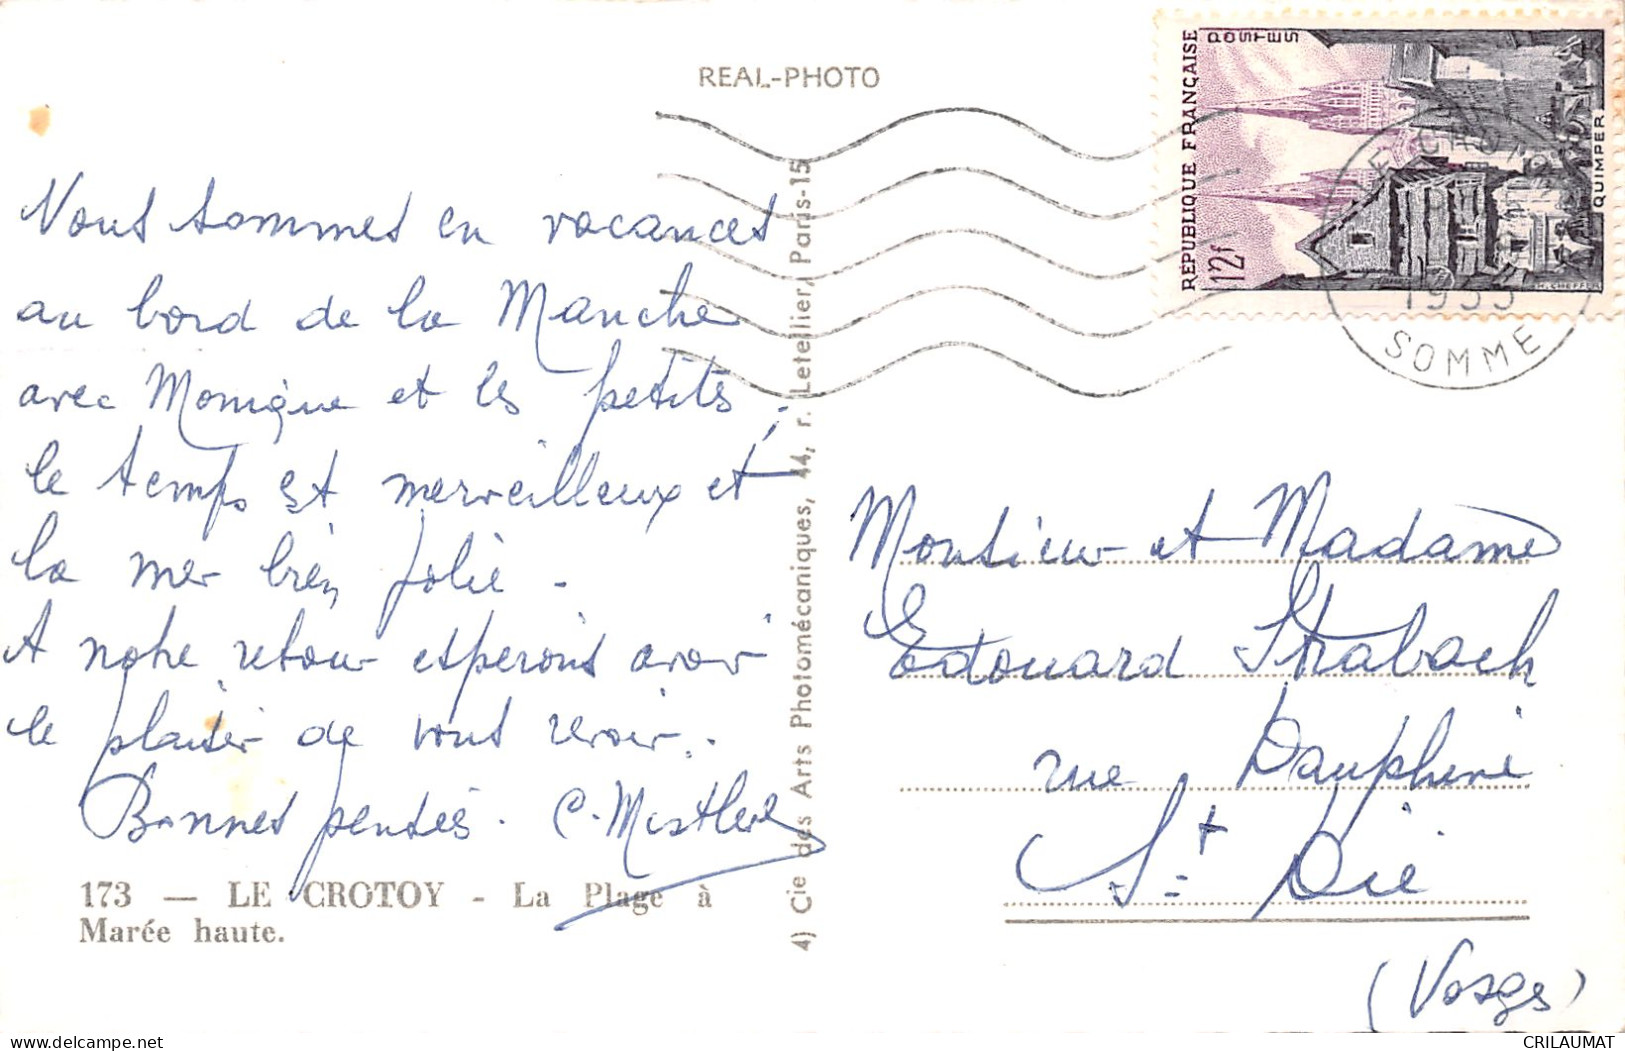 REAL-PHOTO
RÉPUBLIQUE FRANÇAISE
POSTES
12f
QUIMPER
H. CHEFFER
LE CROTOY
1955
SOMME
Nous sommes en vacances
au bord de la Manche
avec Monique et les petits,
le temps est merveilleux et
la mer bien jolie -
A notre retour esperons avoir
le plaisir de vous revoir.
Bonnes pensées. C. Mistler
173 — LE CROTOY - La Plage à
Marée haute.
4) Cie des Arts Photomécaniques, 44, r. Letellier, Paris-15
Monsieur et Madame
Edouard Strabach
rue Dauphine
St Dié
(Vosges)
CRILAUMAT